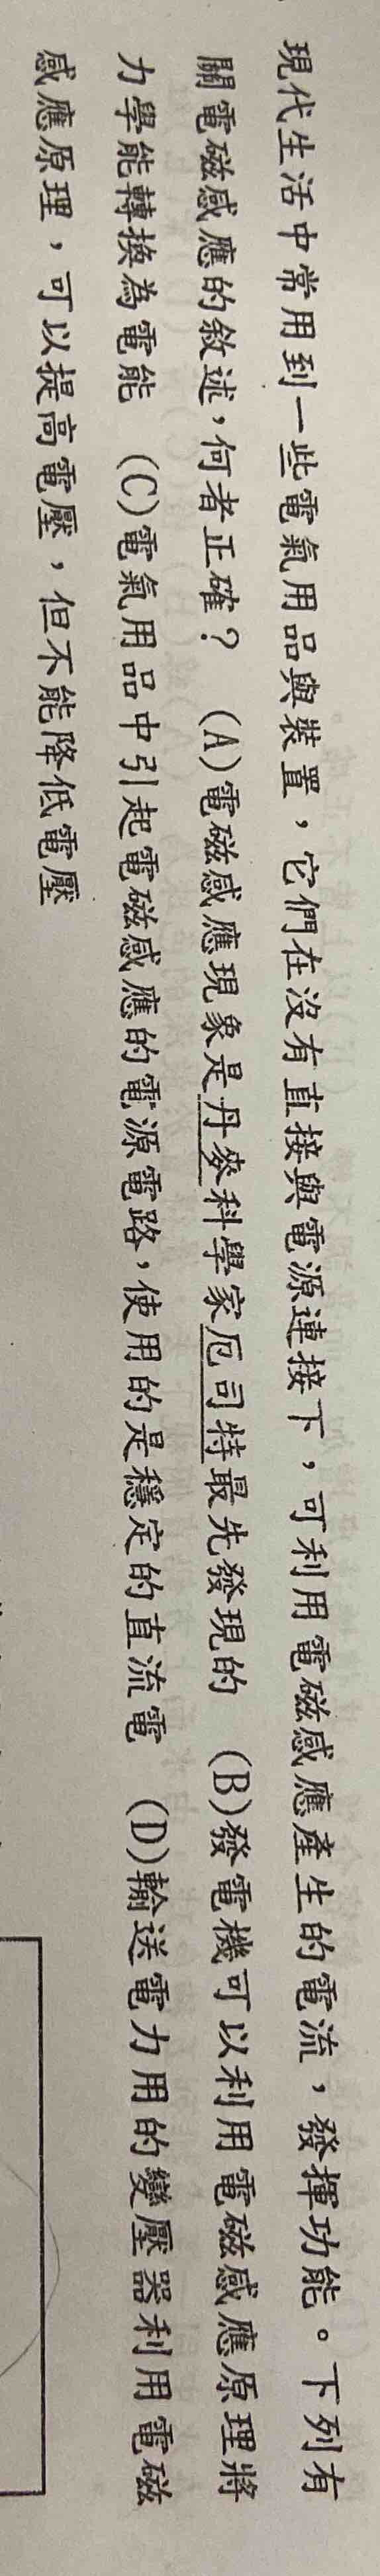 現代生活中常用到一些電氣用品與裝置，它們在沒有直接與電源連接下，可利用電磁感應產生的電流，發揮功能。下列有
關電磁感應的敘述，何者正確？ (A)電磁感應現象是丹麥科學家厄司特最先發現的 (B)發電機可以利用電磁感應原理將
力學能轉換為電能 (C)電氣用品中引起電磁感應的電源電路，使用的是穩定的直流電 (D)輸送電力用的變壓器利用電磁
感應原理，可以提高電壓，但不能降低電壓